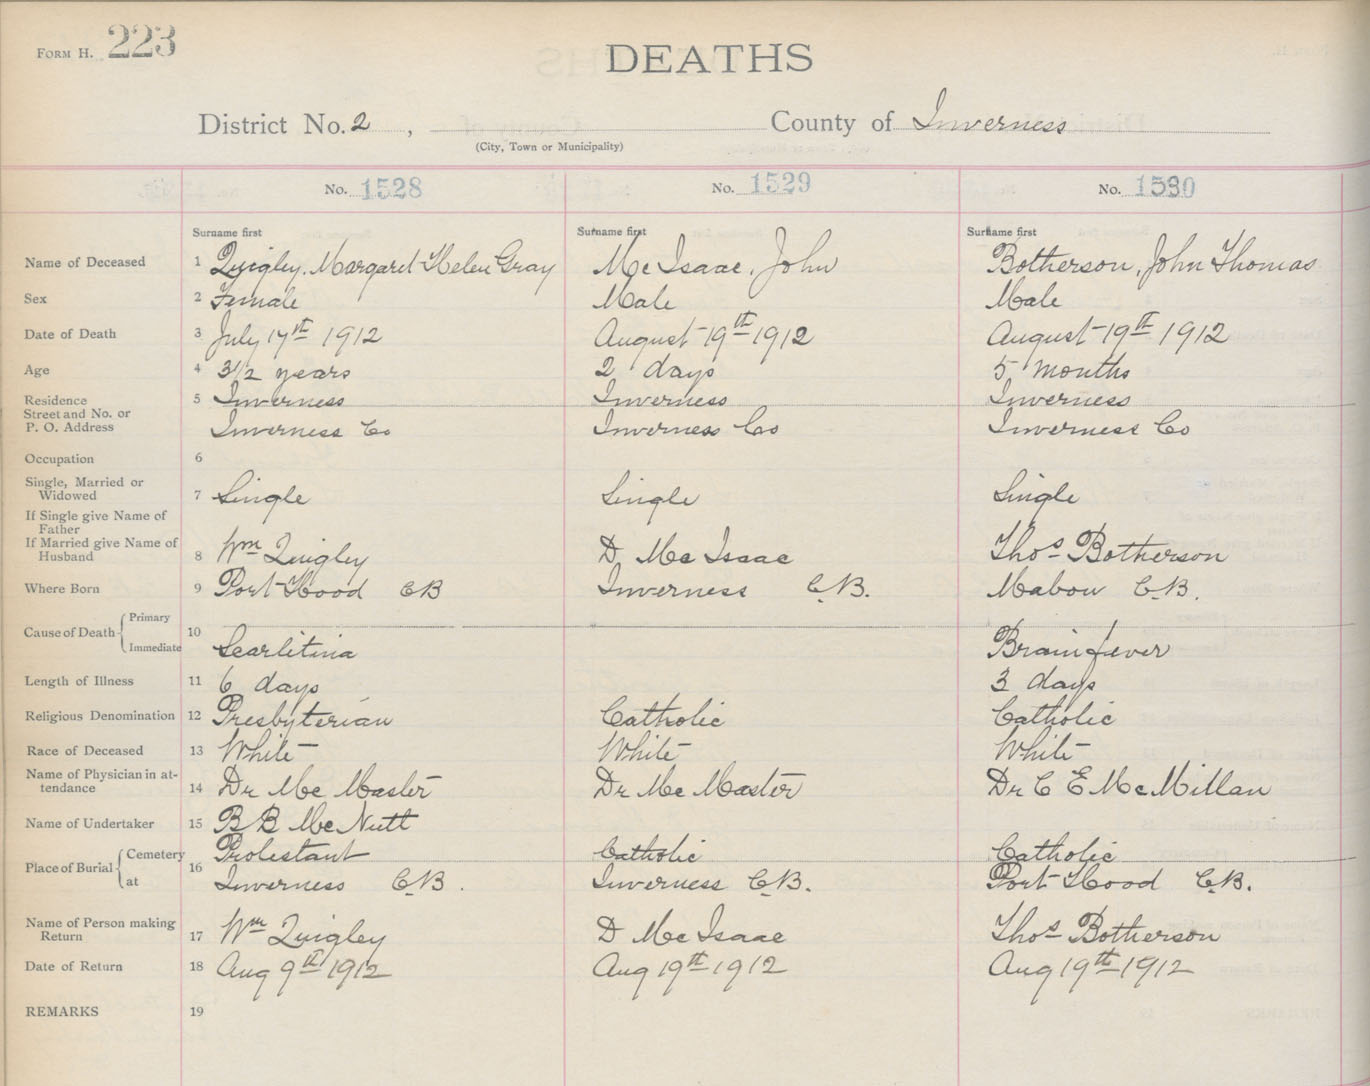 FORM H. 223
DEATHS
District No. 2 , County of Inverness
(City, Town or Municipality)
No. 1528 No. 1529 No. 1530
Surname first Surname first Surname first
Name of Deceased 1 Quigley, Margaret Helen Gray McIsaac, John Botherson, John Thomas
Sex 2 Female Male Male
Date of Death 3 July 17th 1912 August 19th 1912 August 19th 1912
Age 4 3 1/2 years 2 days 5 months
Residence 5 Inverness Inverness Inverness
Street and No. or
P. O. Address Inverness Co Inverness Co Inverness Co
Occupation 6
Single, Married or
Widowed 7 Single Single Single
If Single give Name of
Father
If Married give Name of
Husband 8 Wm Quigley D McIsaac Thos Botherson
Where Born 9 Port Hood CB Inverness C.B. Mabou C.B.
Cause of Death Primary
10
Immediate Scarlitina Brain fever
Length of Illness 11 6 days 3 days
Religious Denomination 12 Presbyterian Catholic Catholic
Race of Deceased 13 White White White
Name of Physician in at-
tendance 14 Dr McMaster Dr McMaster Dr C E McMillan
Name of Undertaker 15 B B McNutt
Place of Burial Cemetery Protestant Catholic Catholic
16
at Inverness C.B. Inverness C.B. Port Hood C.B.
Name of Person making
Return 17 Wm Quigley D McIsaac Thos Botherson
Date of Return 18 Aug 9th 1912 Aug 19th 1912 Aug 19th 1912
REMARKS 19